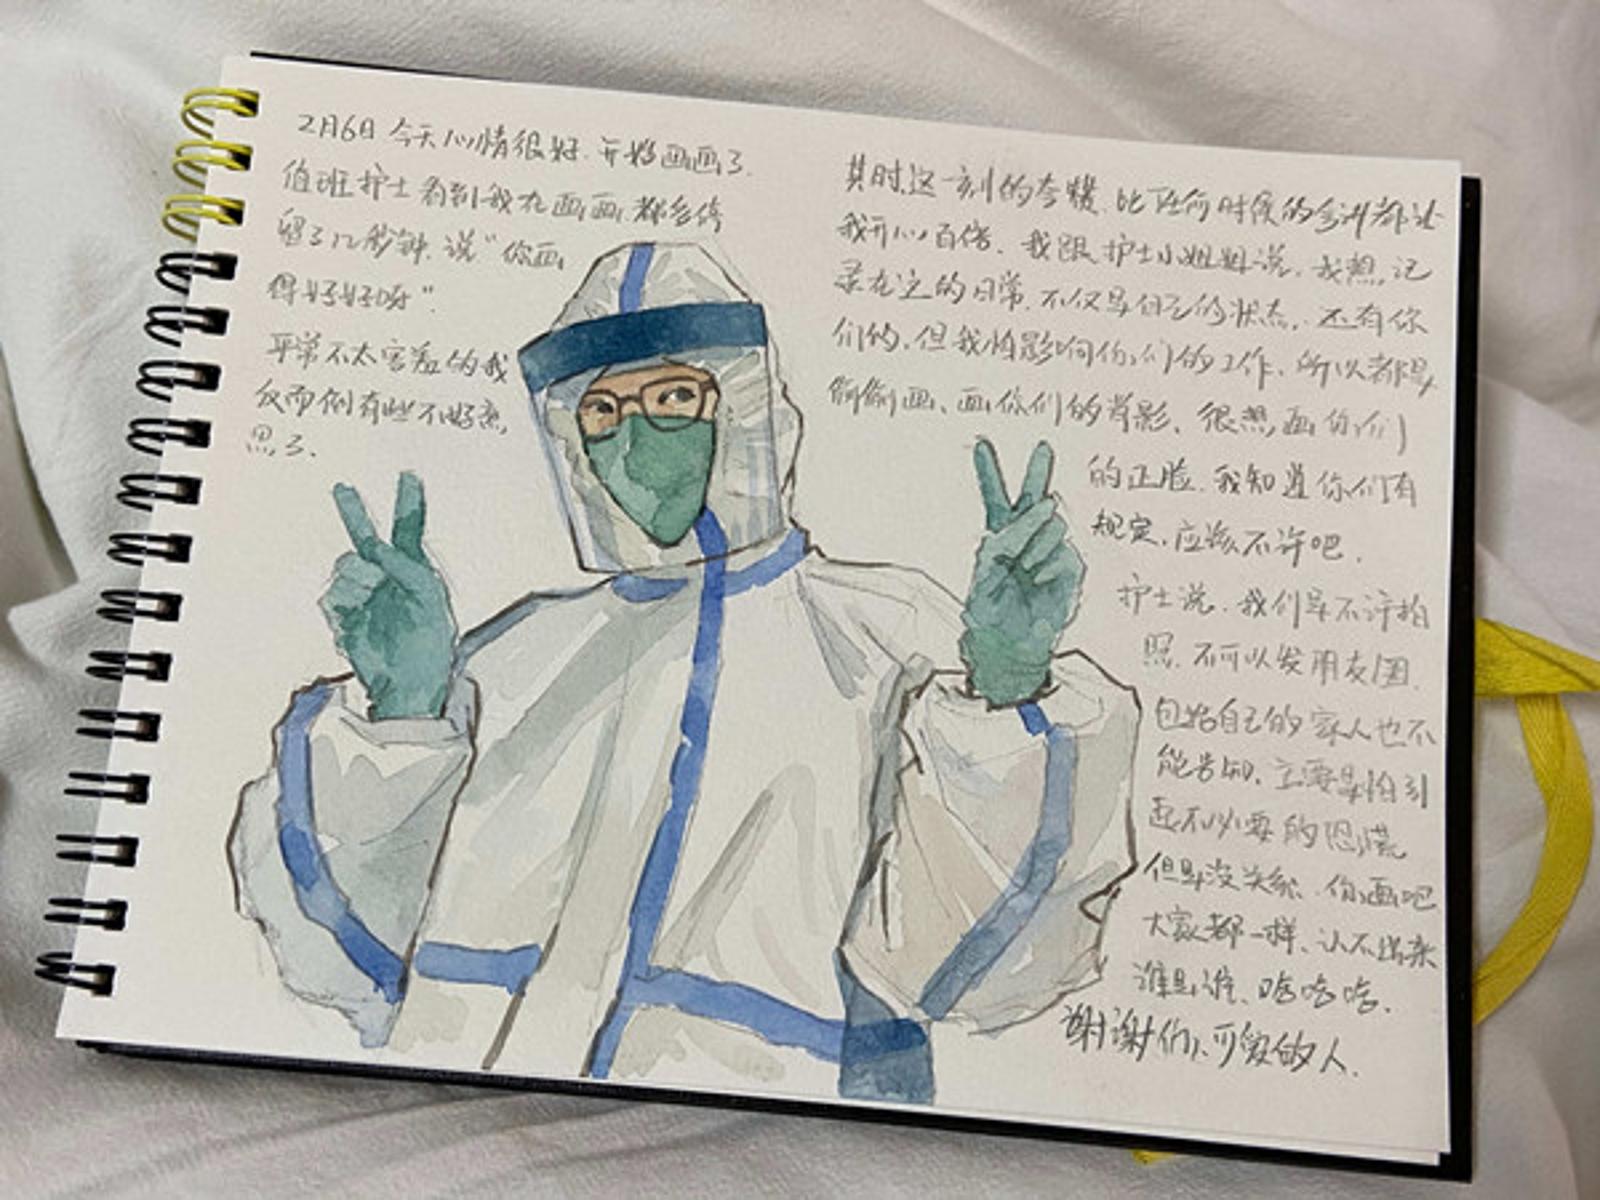 2月6日 今天心情很好.开始画画了.
值班护士看到我在画画,都会停
留了几秒钟.说“你画
得好好呀”.
平常不太害羞的我
反而倒有些不好意
思了.
其时.这一刻的夸赞.比任何时候的
我开心百倍.我跟护士小姐姐说.我想,记
录在这的日常.不仅是自己的状态.还有你
们的.但我怕影响你们的工作.所以都是
偷偷画、画你们的背影.很想,画你们
的正脸.我知道你们有
规定.应该不许吧.
护士说.我们是不许拍
照.不可以发朋友圈.
包括自己的家人也不
能告知.主要是怕引
起不必要的恐慌
但是没关系.你画吧
大家都一样、认不出来
谁是谁、哈哈哈.
谢谢你们、可爱的人.